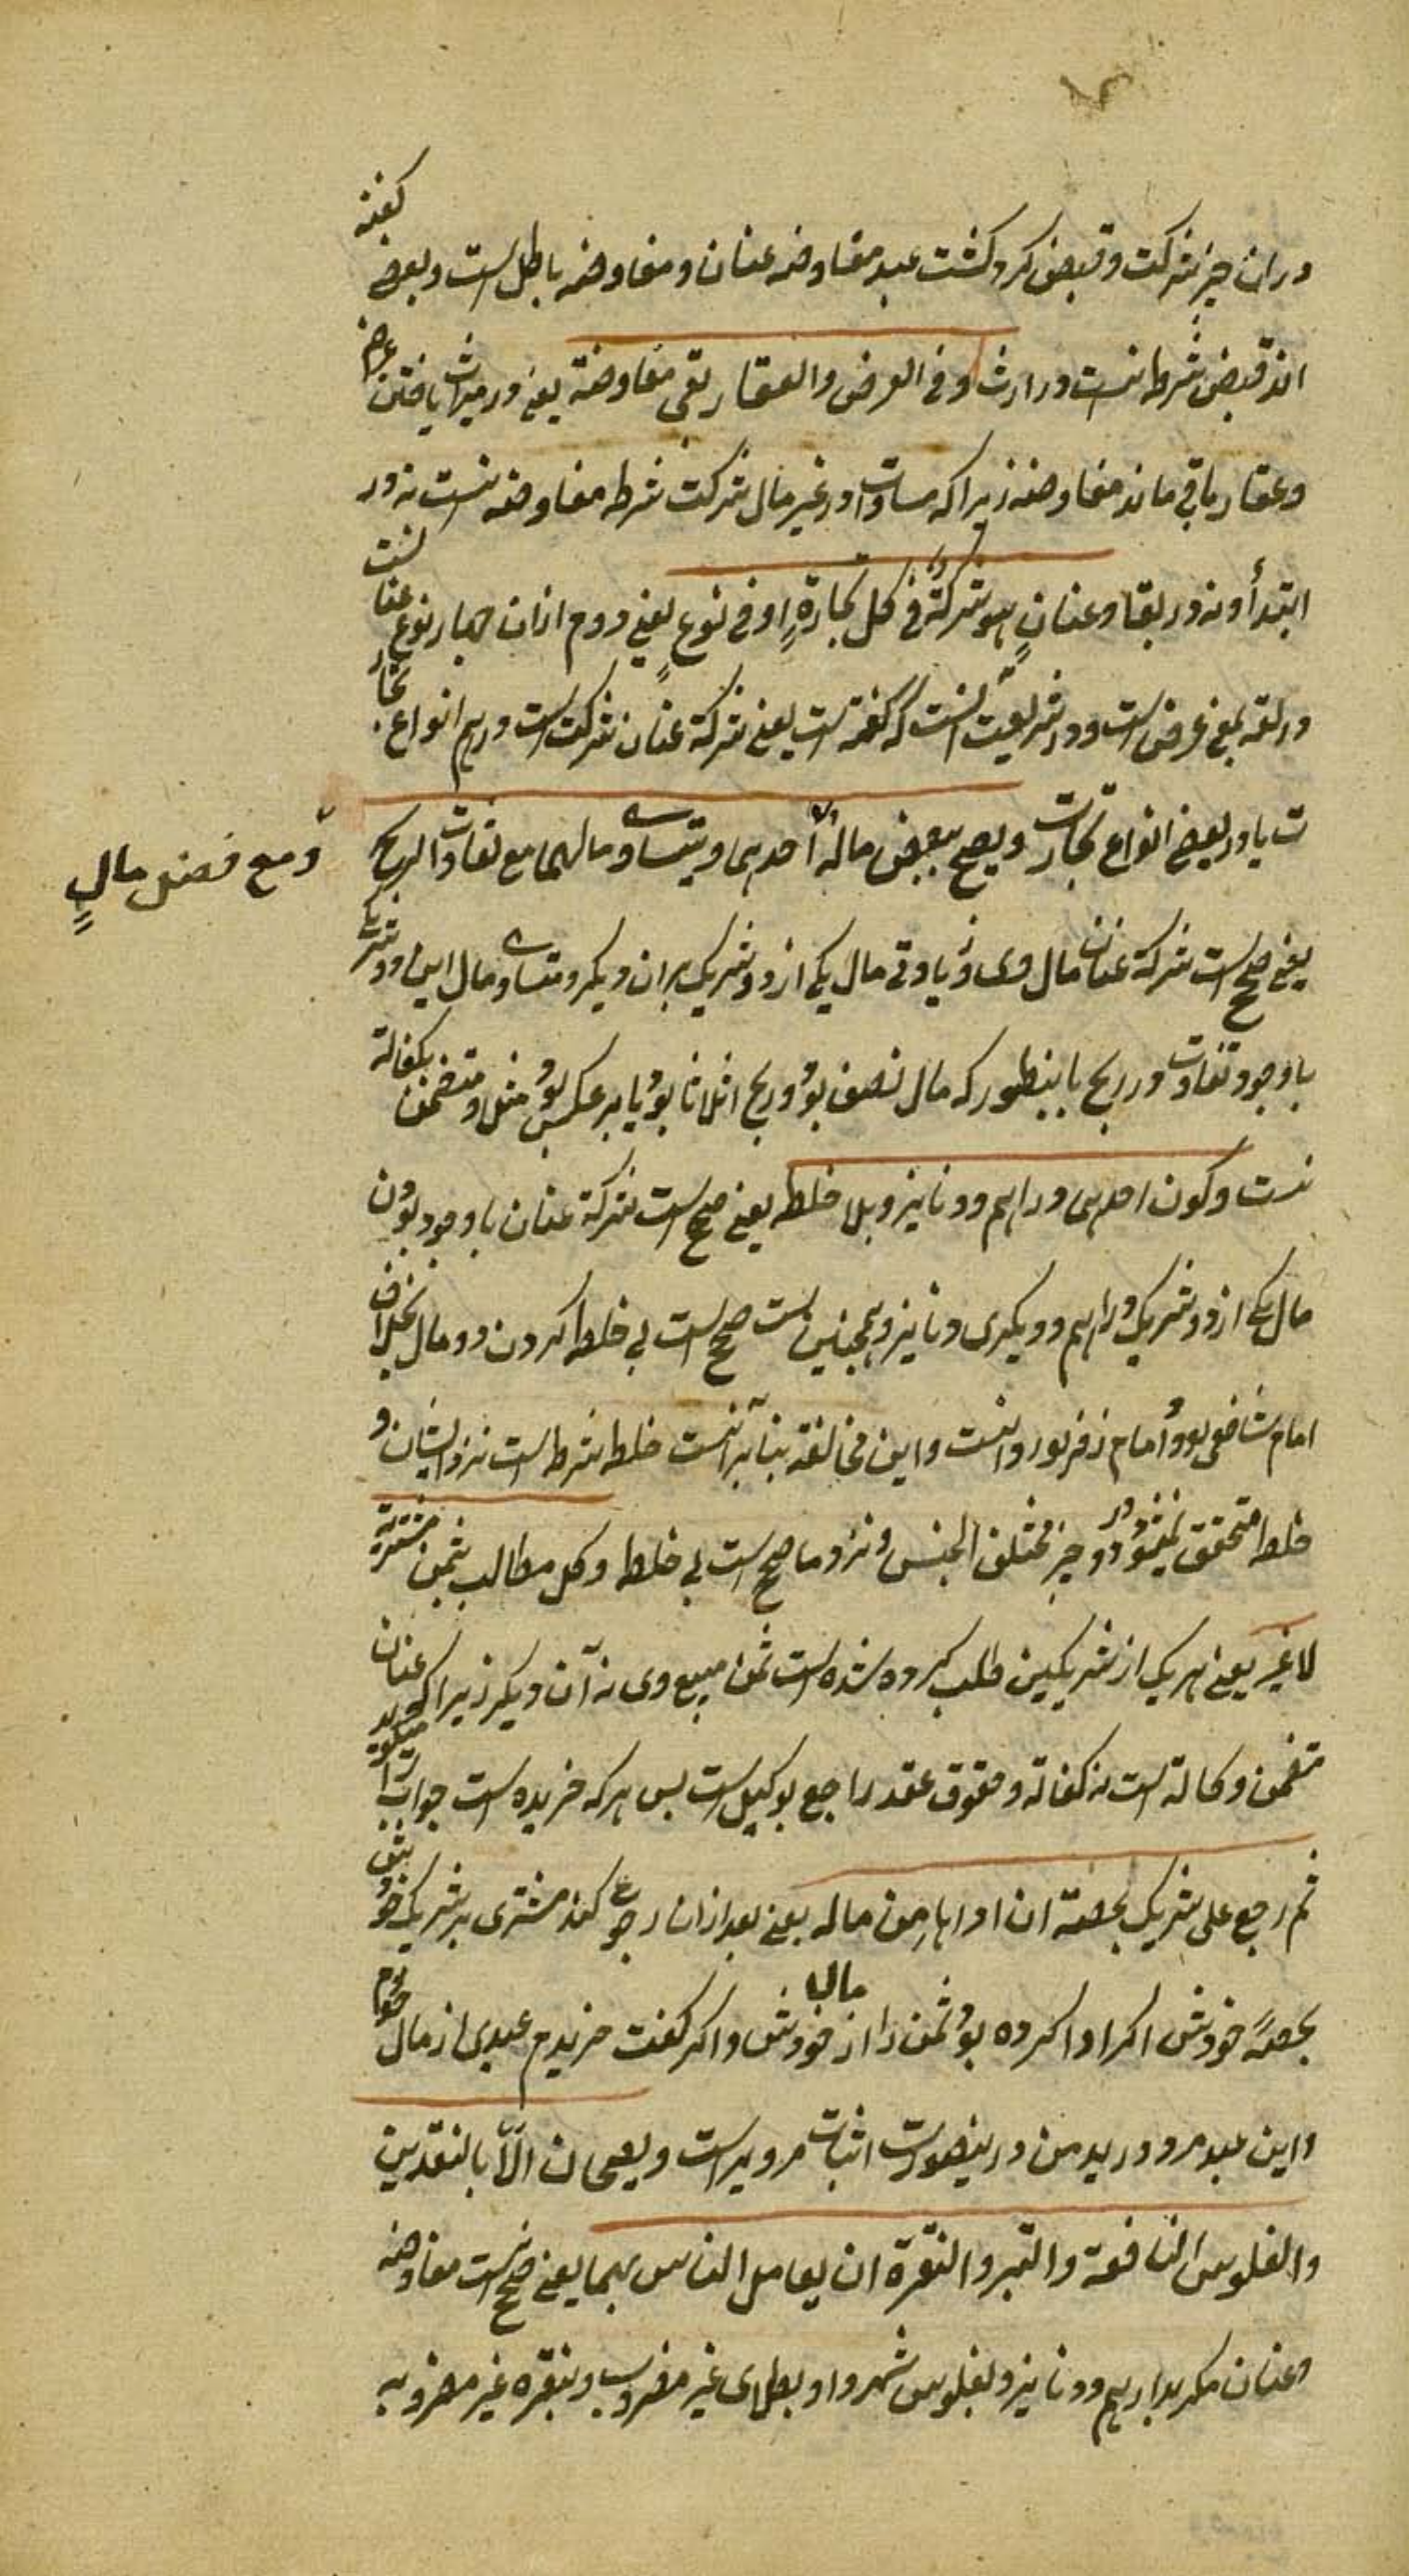 دران چیز شرکت و قبض کرد کشت عبد مفاوضه عنان و مفاوضه باطل است و بعضے کفته
اند قبض شرط نیست در ارث و فی العرض والعقار بقی مفاوضة یعنے در میراث یافتن عرض
و عقار باقی ماند مفاوضه زیراکه مساوات در غیر مال شرکت شرط مفاوضه نیست نه در
ابتدأ و نه در بقا و عنانٍ هو شرکة فی کل تجارةٍ او فی نوعٍ یعنے دوم ازان چهار نوع عنا نست
در لغه بمعنے عرض است و در شریعت انست که کفته است یعنے شرکة عنان شرکت است در هم انواع تجار
ت یا در بعضے انواع تجارت و یصح ببعض ماله احدهما و یتساوے مالهما مع تفاوت الربح
و مع فضل مالٍ
یعنے صحیح است شرکة عنان مال وی و زیادتی مال یکی از دو شریک بران دیکر و متساوے مال این دو شریک
باوجود تفاوت در ربح باینطور که مال نصف بود و ربح اثلاثا بود یا برعکس بود مثل و متضمن بکفالة
نیست و کون احدهما دراهم و دنانیر و بلا خلط یعنے صحیح است شرکة عنان باوجود بودن
مال یکے از دو شریک دراهم و دیکری دنانیر و همچنین است صحیح است بی خلط کردن دو مال بخلاف
امام شافعی بود و امام زفر بود و انست و این مخالفة بنا برآنست خلط شرط است نزد ایشان و
خلط متحقق نمیشود در دو چیز مختلف الجنس و نزد ما صحیح است بی خلط و کل مطالب بثمن مشتریه
لاغیر یعنے هر یک از شریکین طلب کرده شده است ثمن مبیع وی نه آن دیکر زیرا که عنان
متضمن وکالة است نه کفالة و حقوق عقد راجع بوکیل است پس هر که خریده است جواب میکوید
ثم رجع علی شریک بحصته ان اداها من ماله یعنے بعد ازان رجوع کند مشتری بر شریک خود
بحصهٔ خودش اکر ادا کرده بود ثمن را از مال خودش و اکر کفت خریدم عبدی از مال خودم
و این عبد مرد و در ید من درینصورت اثبات مرویراست و یصحان الّا بالنقدین
والفلوس النافقة والتبر والنقرة ان یعامل الناس بهما یعنے صحیح نیست مفاوضه
و عنان مکر بدراهم و دنانیر و بفلوس شهر و او بطلای غیر مضروب و بنقره غیر مضروبه